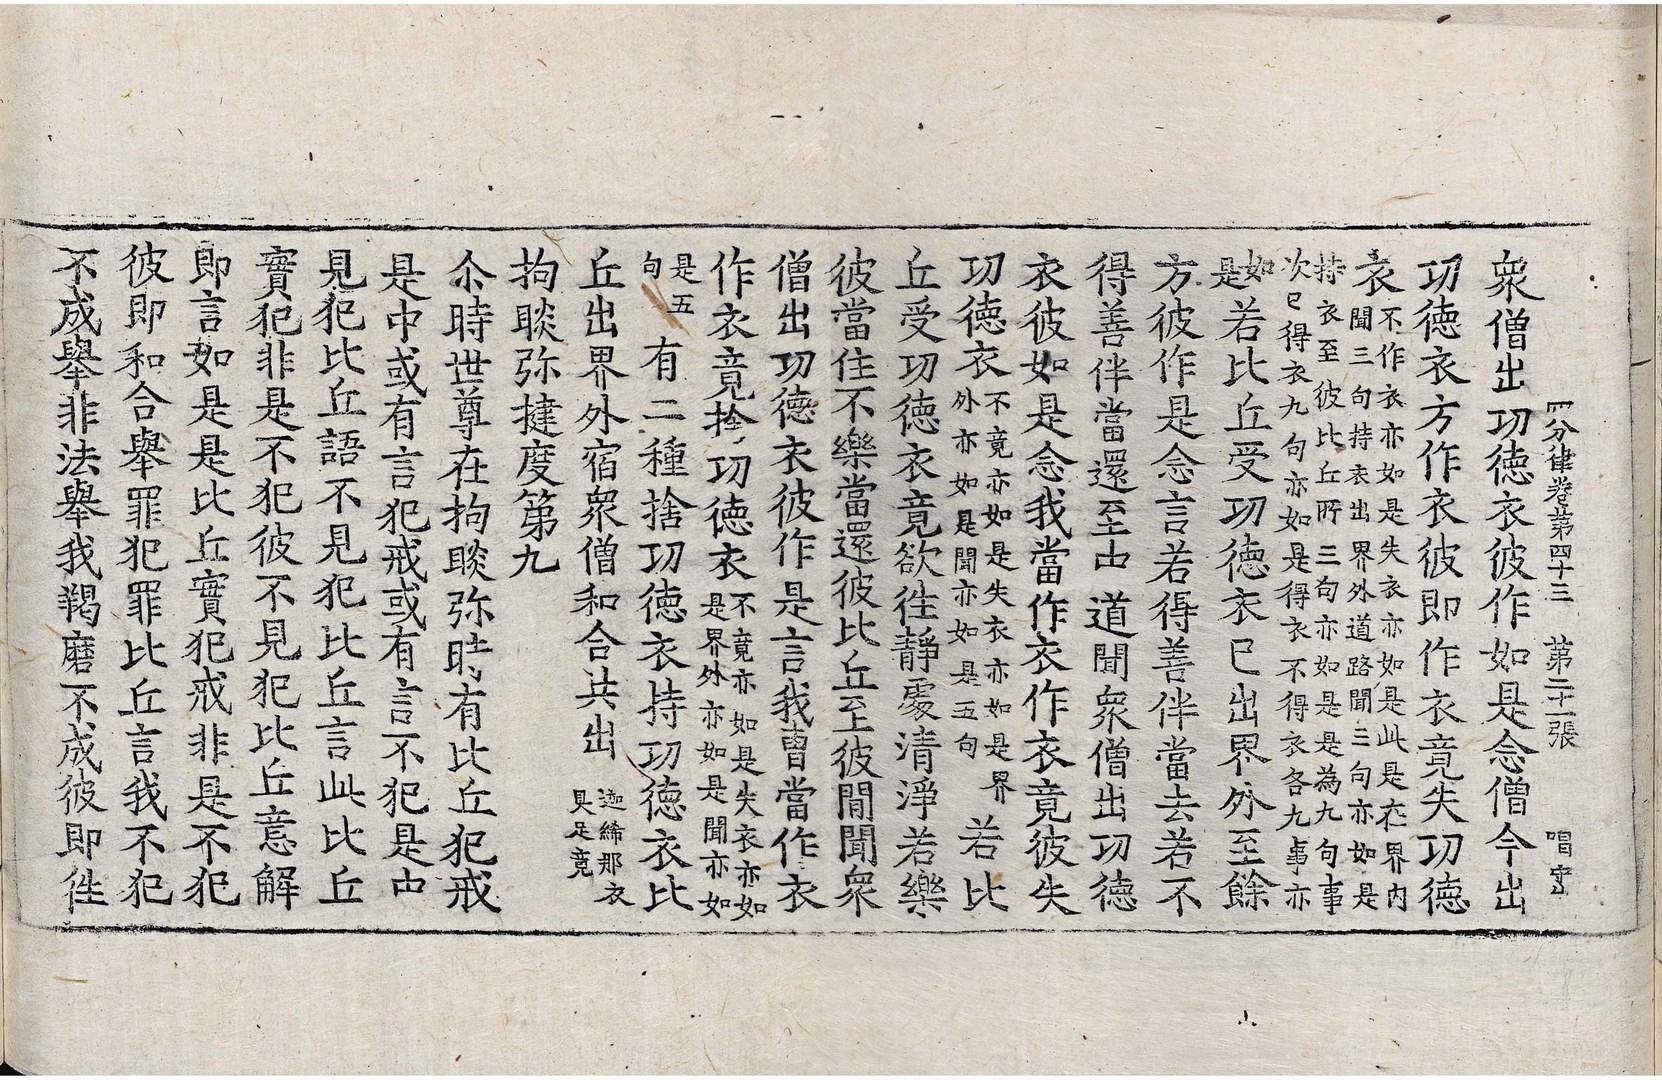 四分律卷第四十三　第二十一張　唱字
衆僧出功德衣彼作如是念僧今出
功德衣方作衣彼即作衣竟失功德
衣
不作衣亦如是失衣亦如是此是在界内
聞三句持衣出界外道路聞三句亦如是
持衣至彼比丘所三句亦如是是為九句事
次已得衣九句亦如是得衣不得衣各九事亦
如是若比丘受功德衣已出界外至餘
方彼作是念言若得善伴當去若不
得善伴當還至中道聞衆僧出功德
衣彼如是念我當作衣作衣竟彼失
功德衣
不竟亦如是失衣亦如是界
外亦如是聞亦如是五句
若比
丘受功德衣竟欲往靜處清淨若樂
彼當住不樂當還彼比丘至彼間聞衆
僧出功德衣彼作是言我曹當作衣
作衣竟捨功德衣
不竟亦如是失衣亦如
是界外亦如是聞亦如
是五
句
有二種捨功德衣持功德衣比
丘出界外宿衆僧和合共出
迦絺那衣
具足竟
拘睒弥揵度第九
尒時世尊在拘睒弥時有比丘犯戒
是中或有言犯戒或有言不犯是中
見犯比丘語不見犯比丘言此比丘
實犯非是不犯彼不見犯比丘意解
即言如是是比丘實犯戒非是不犯
彼即和合舉罪犯罪比丘言我不犯
不成舉非法舉我羯磨不成彼即往